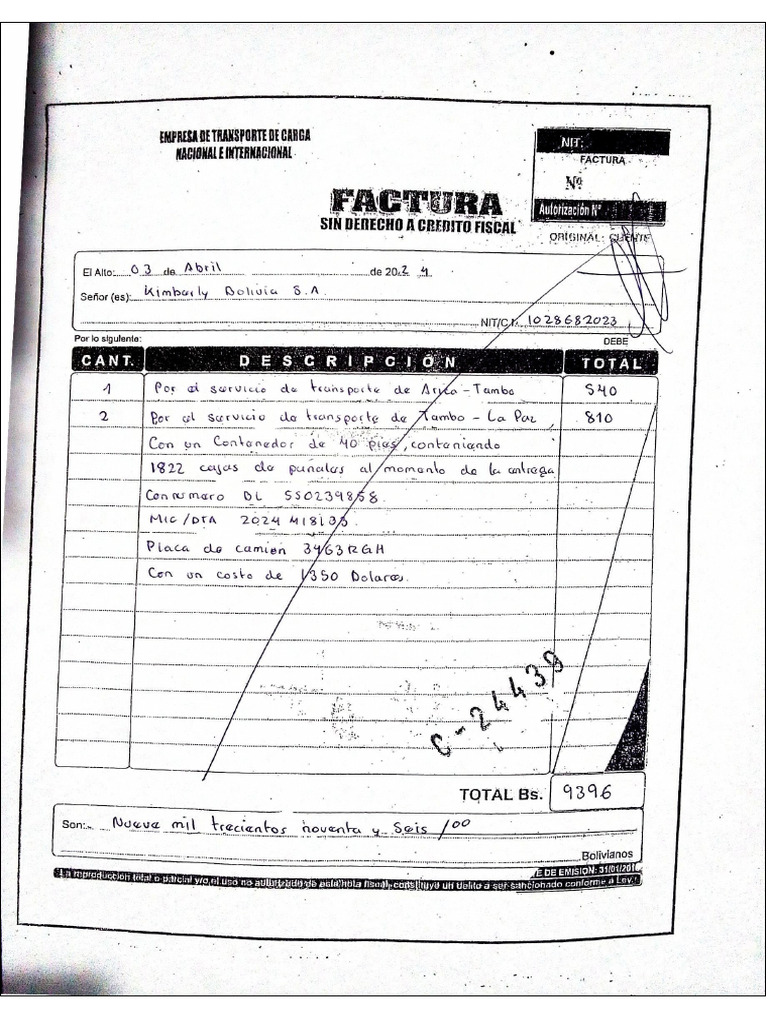 EMPRESA DE TRANSPORTE DE CARGA
NACIONAL E INTERNACIONAL
NIT:
FACTURA
Nº
Autorización Nº
ORIGINAL: CLIENTE
FACTURA
SIN DERECHO A CREDITO FISCAL
El Alto: 03 de Abril de 2024
Señor (es): Kimberly Bolivia S.A.
NIT/C.I. 1028682023
Por lo siguiente: DEBE
CANT. DESCRIPCIÓN TOTAL
1 Por el servicio de transporte de Arica - Tambo 540
2 Por el servicio de transporte de Tambo - La Paz, 810
Con un Contenedor de 40 pies, conteniendo
1822 cajas de pañales al momento de la entrega
Con numero BL SS0239858
MIC/DTA 2024 418133
Placa de camion 3463RGH
Con un costo de 1350 Dolares.
C-24439
TOTAL Bs. 9396
Son: Nueve mil trecientos noventa y Seis /00
Bolivianos
E DE EMISION: 31/01/201
La reproducción total o parcial y/o el uso no autorizado de esta nota fiscal, constituye un delito a ser sancionado conforme a Ley.